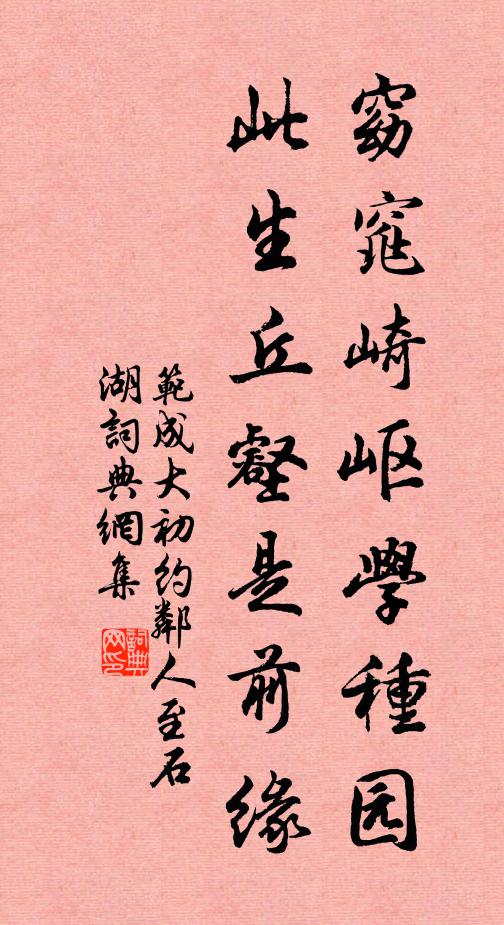 窈窕崎岖學種园
此生丘壑是前缘
範成大初約鄰人至石
湖詞典網集
詞典网印